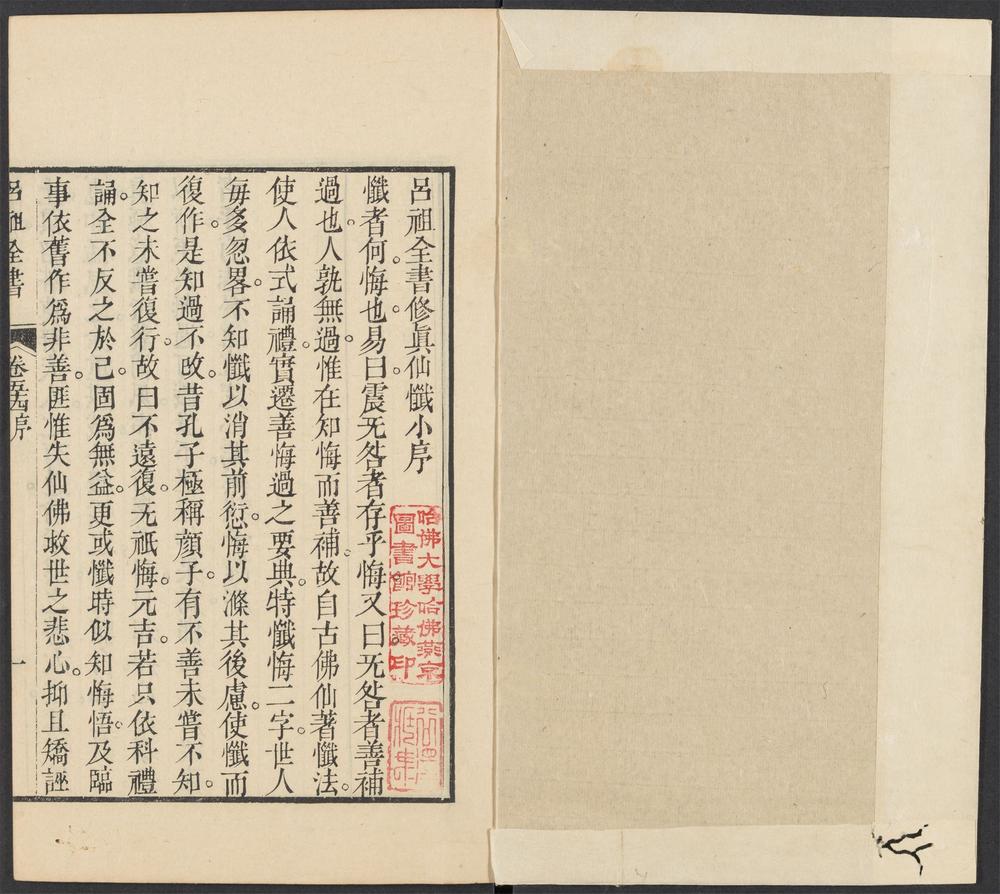 呂祖全書修眞仙懺小序
懺者何。悔也。易曰。震无咎者存乎悔。又曰。无咎者善補
過也。人孰無過。惟在知悔而善補。故自古佛仙著懺法。
使人依式誦禮。實遷善悔過之要典。特懺悔二字。世人
每多忽畧。不知懺以消其前愆。悔以滌其後慮。使懺而
復作。是知過不改。昔孔子極稱顔子。有不善未嘗不知。
知之未嘗復行。故曰不遠復。无祇悔。元吉。若只依科禮
誦。全不反之於己。固爲無益。更或懺時似知悔悟。及臨
事依舊作爲非善。匪惟失仙佛救世之悲心。抑且矯誣
呂祖全書
卷五十四序
一
哈佛大學哈佛燕京
圖書館珍藏印